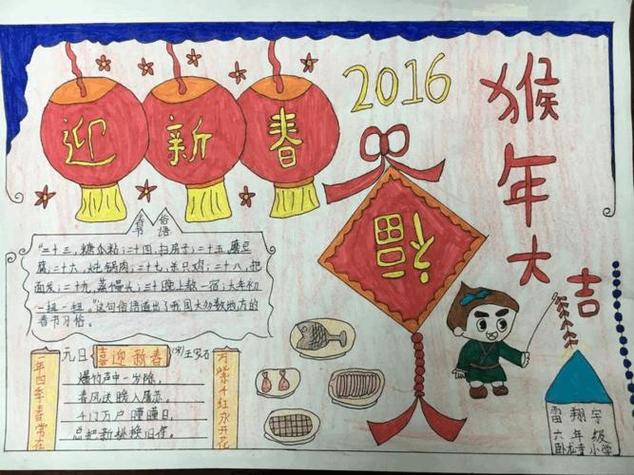 迎新春
2016
猴年大吉
福
春节俗语
“二十三,糖瓜粘;二十四,扫房子;二十五,磨豆
腐;二十六,炖锅肉;二十七,杀只鸡;二十八,把
面发;二十九,蒸馒头;三十晚上熬一宿;大年初
一扭一扭。”这句俗语道出了我国大多数地方的
春节习俗。
元日
喜迎新春
(宋)王安石
爆竹声中一岁除,
春风送暖入屠苏,
千门万户曈曈日,
总把新桃换旧符。
一年四季春常在
万紫千红永开花
雷翔宇
六年级
卧龙寺小学